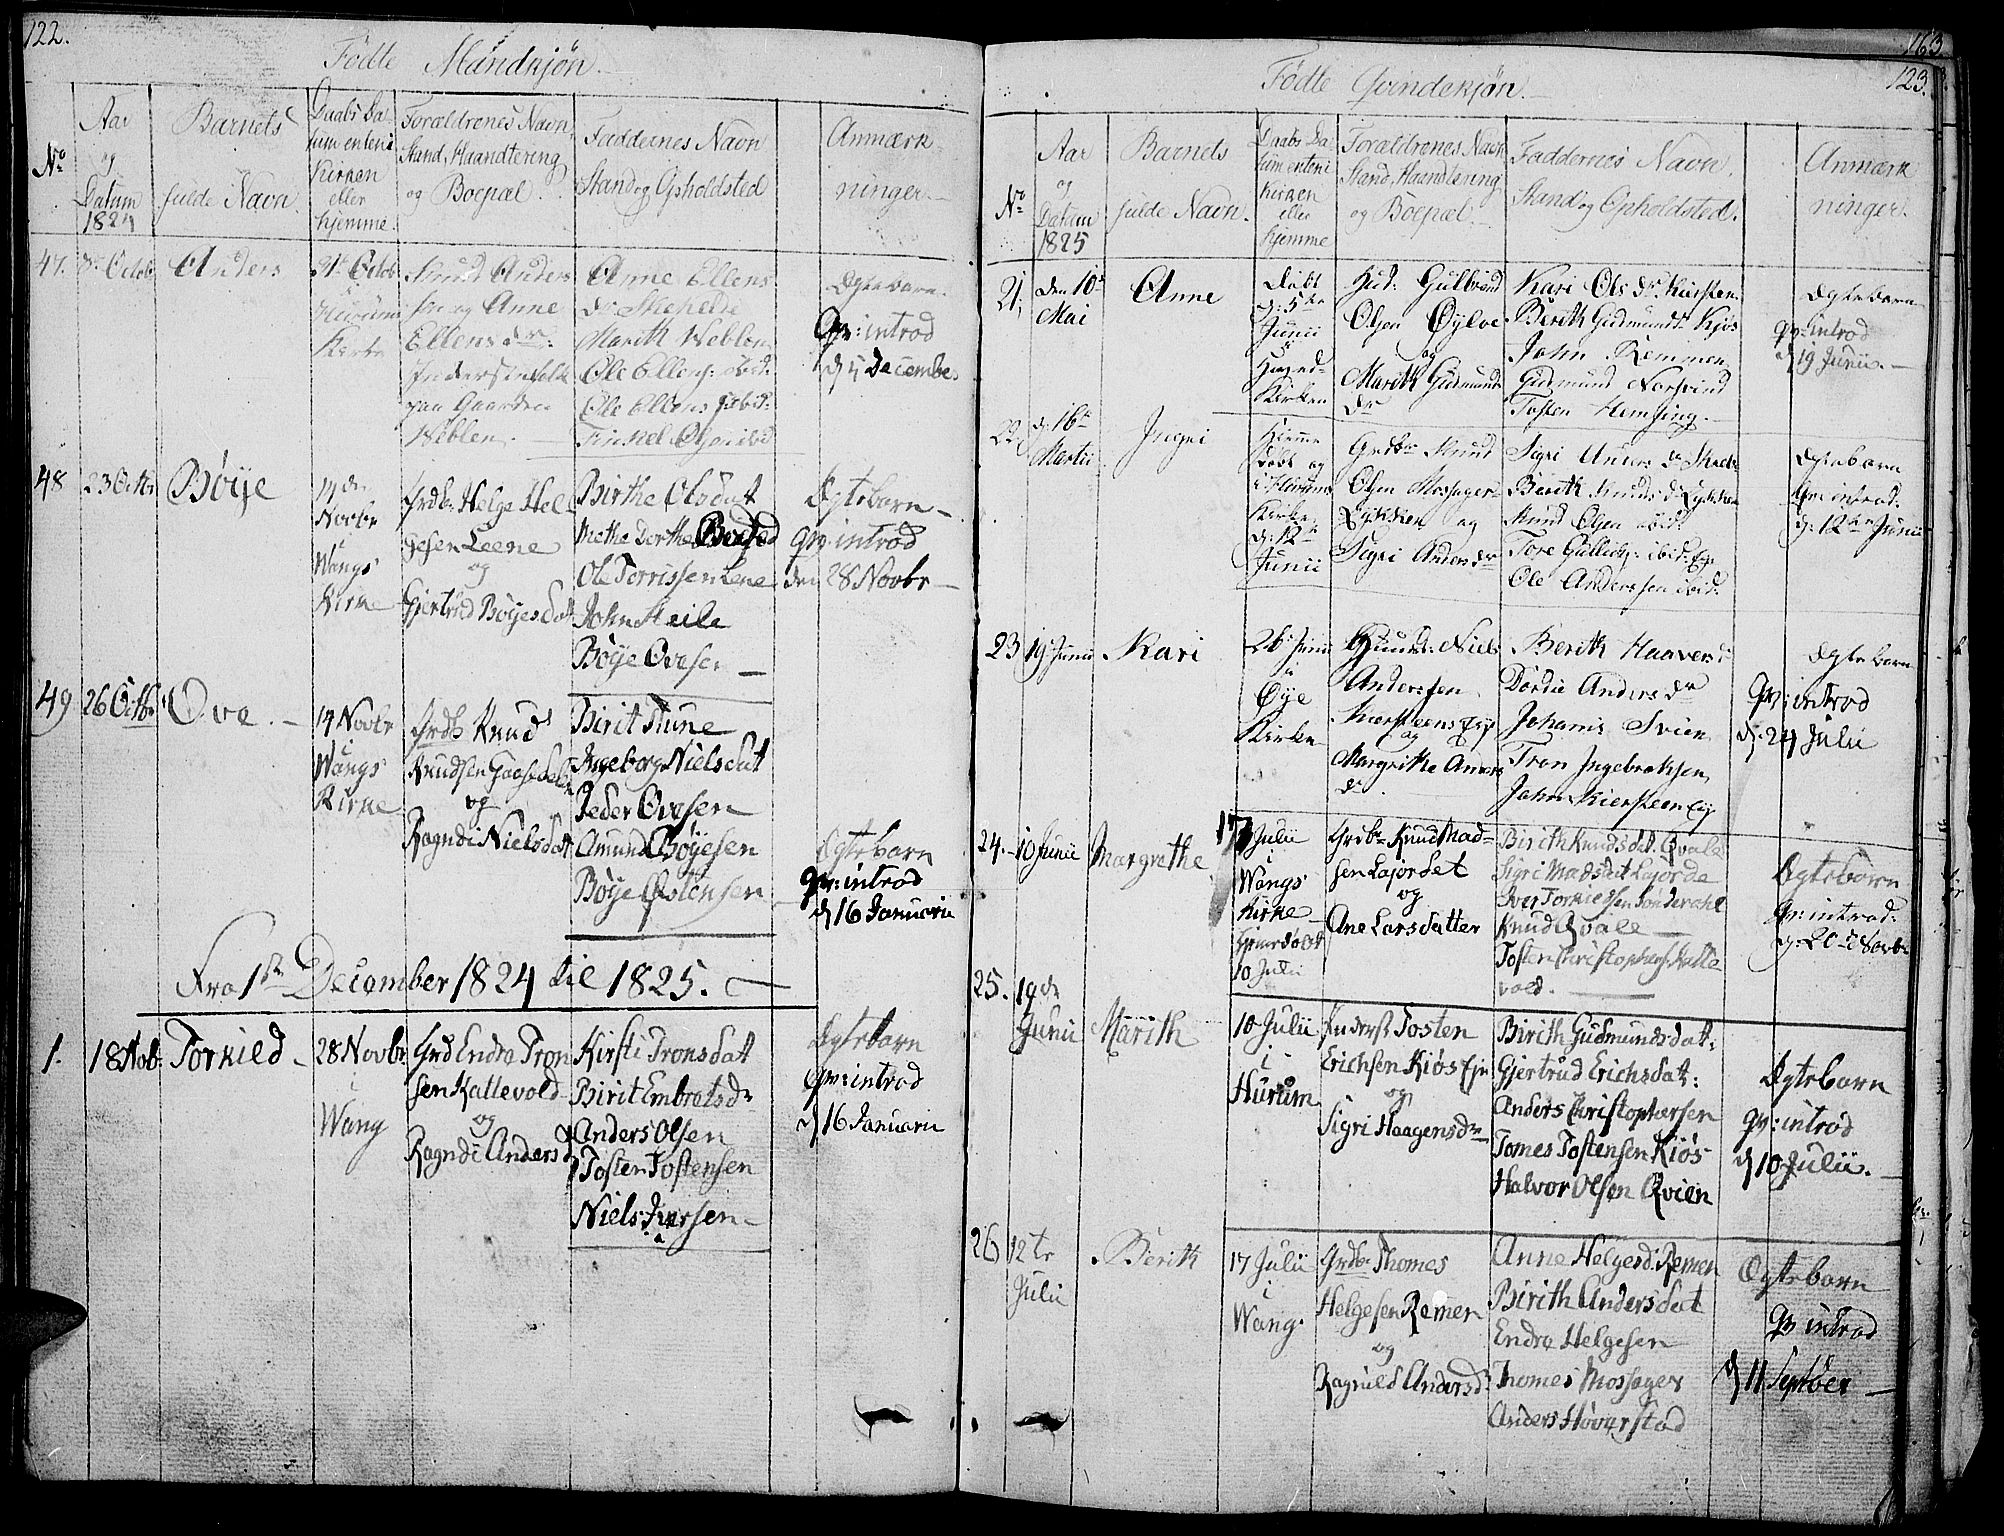 122.
Fødte Mandkjøn.
No
Aar og Datum 1824
Barnets fulde Navn.
Daabs Datum enten i Kirken eller hjemme.
Forældrenes Navn, Stand, Haandtering og Boepæl.
Faddernes Navn Stand og Opholdsted
Anmærkninger.
47.
Octob
Anders
Octob
Hurum
Kirke
Knud Anders
sen og Anne
Ellens dr.
paa Gaarden
Weblen.
Anne Ellens
dr
Marith Weblen
Ole Ellens: ibid:
Ole Ellens ibid:
ibid
Ægtebarn.
qv: introd
d 5 December
48
23 Octbr
Bøye
14 de
Novbr
Wangs
Kirke
Grdb: Helge Hel-
gesen Leene
og
Gjertrud Bøyesdat
Birthe Olsdat
Mette Dorthe
Ole Torrissen Lene
John Steile
Bøye Ovesen
Ægtebarn
qv: introd
den 28 Novbr
49
26 Octbr
Ove.
14 Novbr
Wangs
Kirke
Grdb Knud
Knudsen
og
Ragndi Nielsdat
Birit Tune
Ingeborg Nielsdat
Peder Ovesen
Amund Bøyesen
Bøye Østensen
Ægtebarn
qv: introd
d 16 Januarii
Fra 1ste December 1824 til 1825.
1.
18 Nob:
Torkild
28 Novbr
i
Wang
Grd Endre Tron
sen Kattevold
og
Ragndi Andersd
Kirsti Tronsdat
Birit Embretsdr
Anders Olsen
Tosten Tostensen
Niels Iversen
Ægtebarn
qv: introd
d 16 Januarii
163
123.
Fødte Qvindekjøn.
No
Aar og Datum 1825
Barnets fulde Navn.
Daabs Datum enten i Kirken eller hjemme
Forældrenes Navn Stand, Haandtering og Boepæl.
Faddernes Navn, Stand og Opholdsted.
Anmærkninger.
21,
den 10de
Mai
Anne
Døbt
d: 5te
Junii
i
Kirken
Gulbrand
Olsen Øylve
og
Marith Gudmunds
dr
Kari Ols dr
Berith Gudmunds Kjøs
John Remmen
Gudmund
Tosten Hemsing
Ægtebarn
qv: introd
d 19 Junii.
22,
d: 16de
Martii
Ingri
Hiemme
døbt og
i Hurums
Kirke
d: 12te
Junii
Grdbr Knud
Olsen
Lykken og
Sigri Anders dr
Sigri Anders dr
Berith Knuds dr Lykken
Knud Olsen ibid:
Tore ibid:
Ole Anderssen ibid:
Ægtebarn
qv: introd.
d: 12te Junii
23
19 Junii
Kari
26 Junii
i
Øye
Kirken
Niels
Anderssen
Kiersteens Eje
og
Margrithe Anders
dr.
Berith Haavers
Dordie Anders dr
Johanis Svien
Tron Ingebretsen
John Kiersteen Eje
Ægtebarn
qv: introd
d: 24 Julii
24.
10 Junii
Margrethe
17 Julii
i
Wangs
Kirke
10 Julii
Grdbr Knud Mad-
sen Lajordet
og
Ane Larsdatter
Birith Knudsdat. Qvale
Sigri Madsdat Lajorde
Iver Torkildsen Sønderahl
Knud Qvale
Tosten Christophers Katte
vold.
Ægtebarn
qv: introd:
d: 20de Novbr
25.
19de
Junii
Marith
10 Julii
i
Hurum
Tosten
Erichsen Kiøs Eje
og
Sigri Haagensdr
Birith Gudmundsdat:
Gjertrud Erichsdat:
Anders Christophersen
Tomes Tostensen Kiøs
Halvor Olsen Qvien
Ægtebarn
qv: introd
d 10 Julii.
26
12te
Julii
Berith
17 Julii
i
Wang.
Grdb: Thomes
Helgesen Remen
og
Ragnild Andersd:
Anne Helgesd: Remen
Birith Andersdat
Endre Helgesen
Thomes Mossager
Anders Høverstad
Ægtebarn
qv introd
d 11 Septber